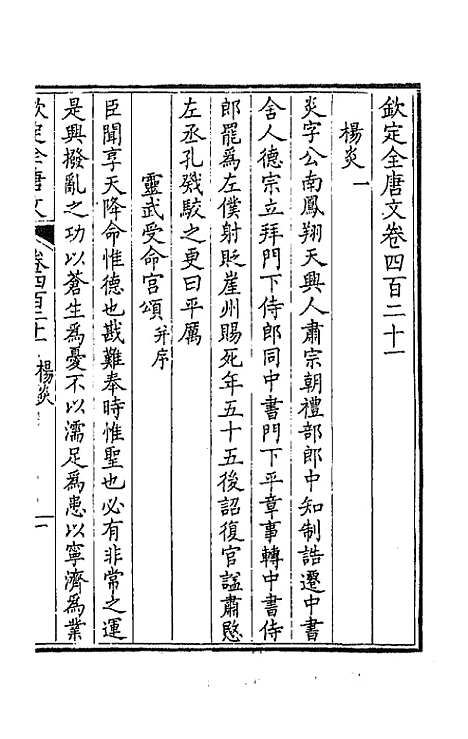 欽定全唐文卷四百二十一
楊炎一
炎字公南鳳翔天興人肅宗朝禮部郎中知制誥遷中書
舍人德宗立拜門下侍郎同中書門下平章事轉中書侍
郎罷爲左僕射貶崖州賜死年五十五後詔復官諡肅愍
左丞孔戣駁之更曰平厲
靈武受命宮頌并序
臣聞享天降命惟德也戡難奉時惟聖也必有非常之運
是興撥亂之功以蒼生爲憂不以濡足爲患以寧濟爲業
欽定全唐文 卷四百二十一 楊炎一 一